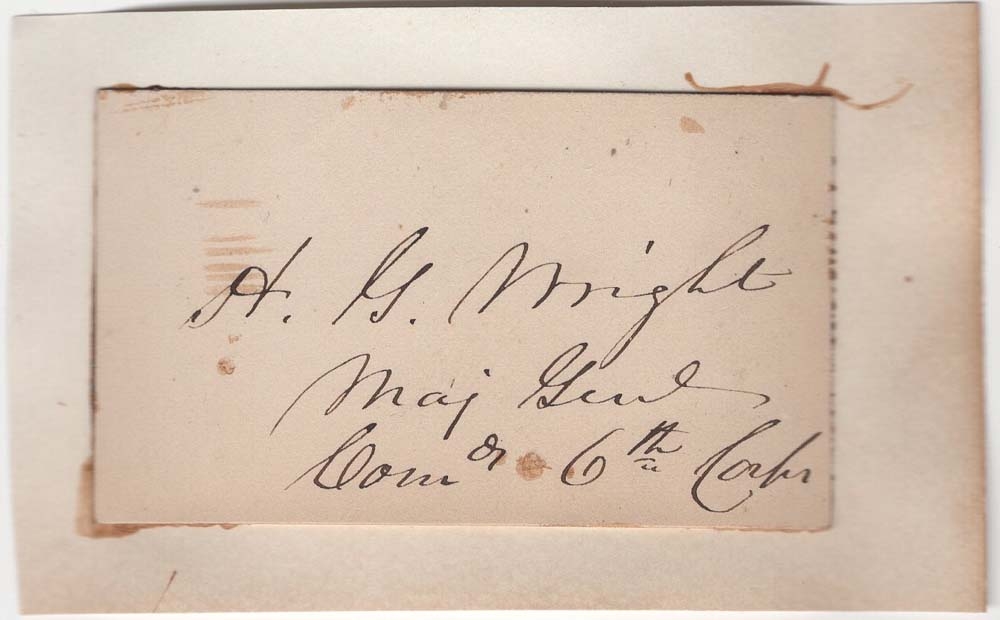 H. G. Wright
Maj Genl
Comdr 6th Corps